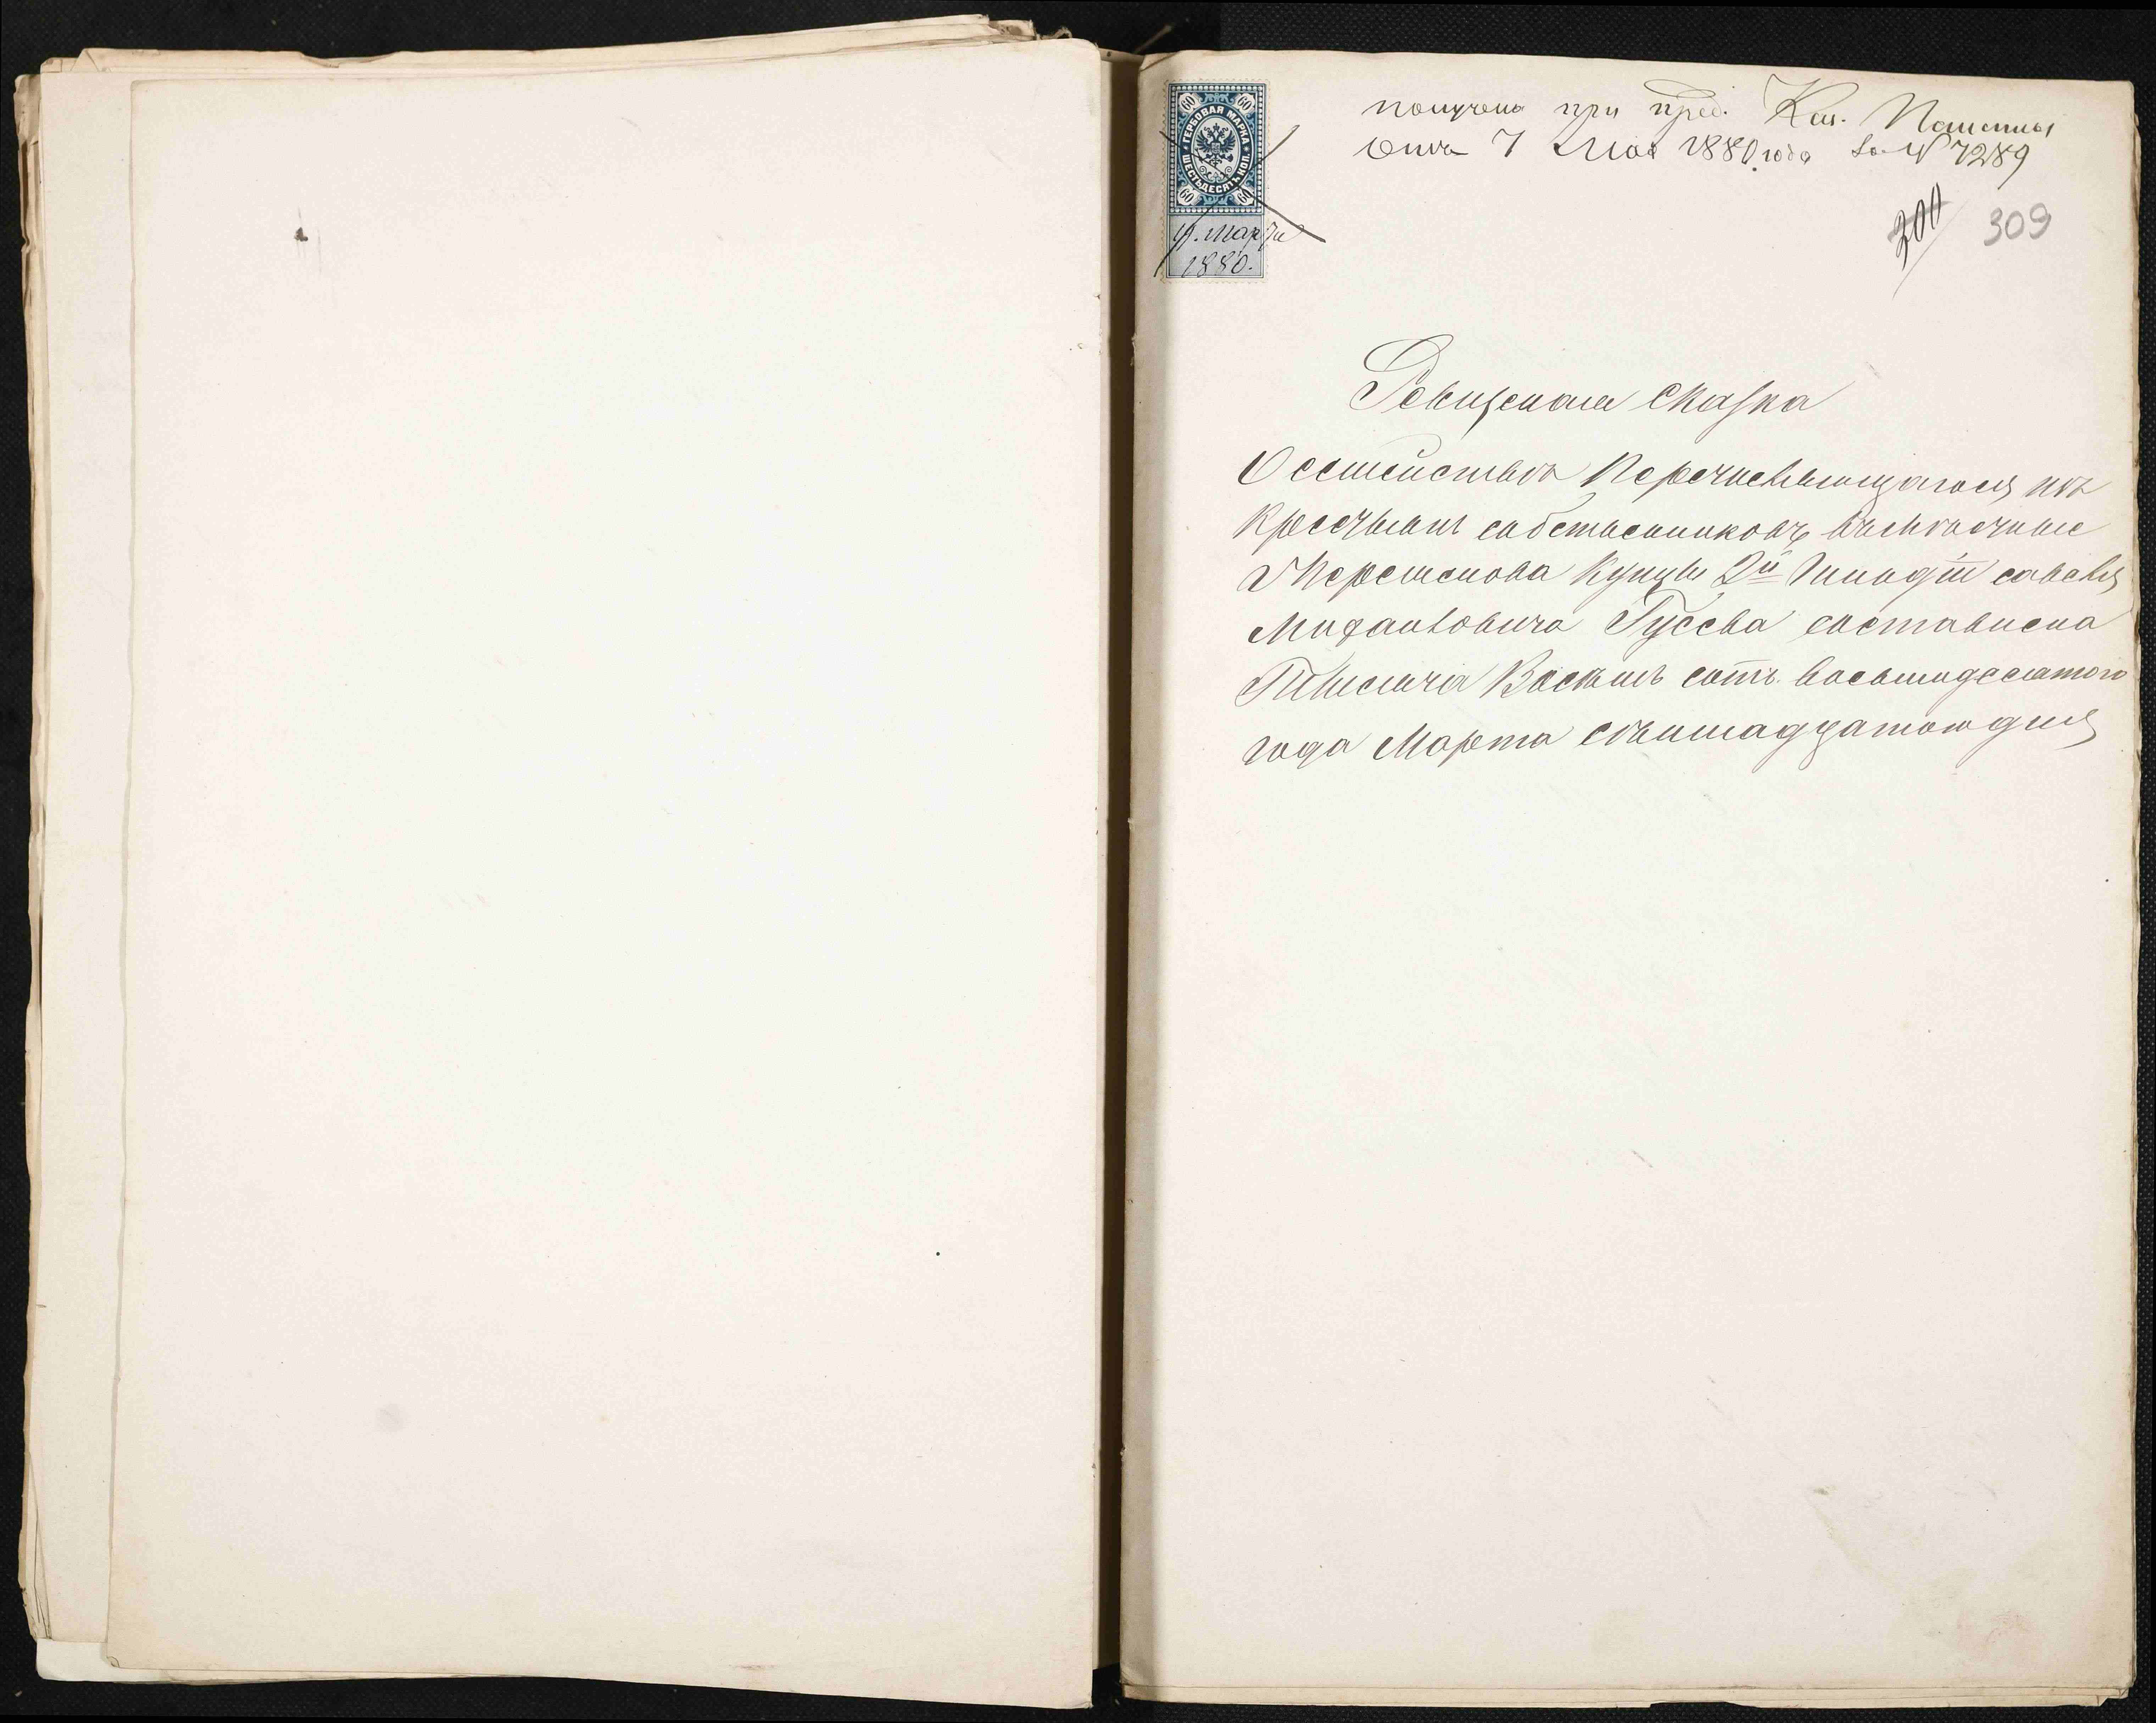 получено при пред. Каз. Палаты
отъ 7 Мая 1880 года за № 7289
60 60
ГЕРБОВАЯ МАРКА
ШЕСТЬДЕСЯТЪ КОП.
60 60
17. Марта
1880.
200 309
Ревизская сказка
О семействѣ перечисляющагося изъ
крестьянъ собственниковъ
купцы 2й Гильдіи савелія
Гусева составлена
Тысяча Восемь сотъ восьмидесятого
года Марта семнадцатого дня